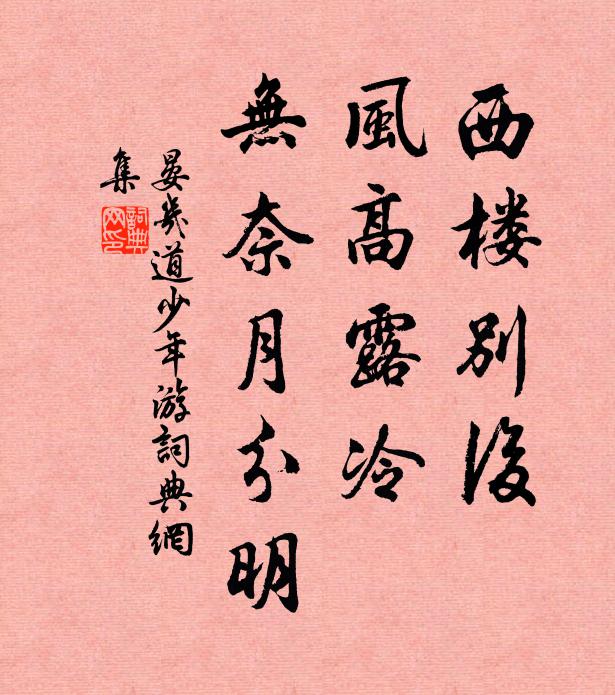 西楼别後
風高露冷
無奈月分明
晏幾道少年游詞典網
集
詞典网印